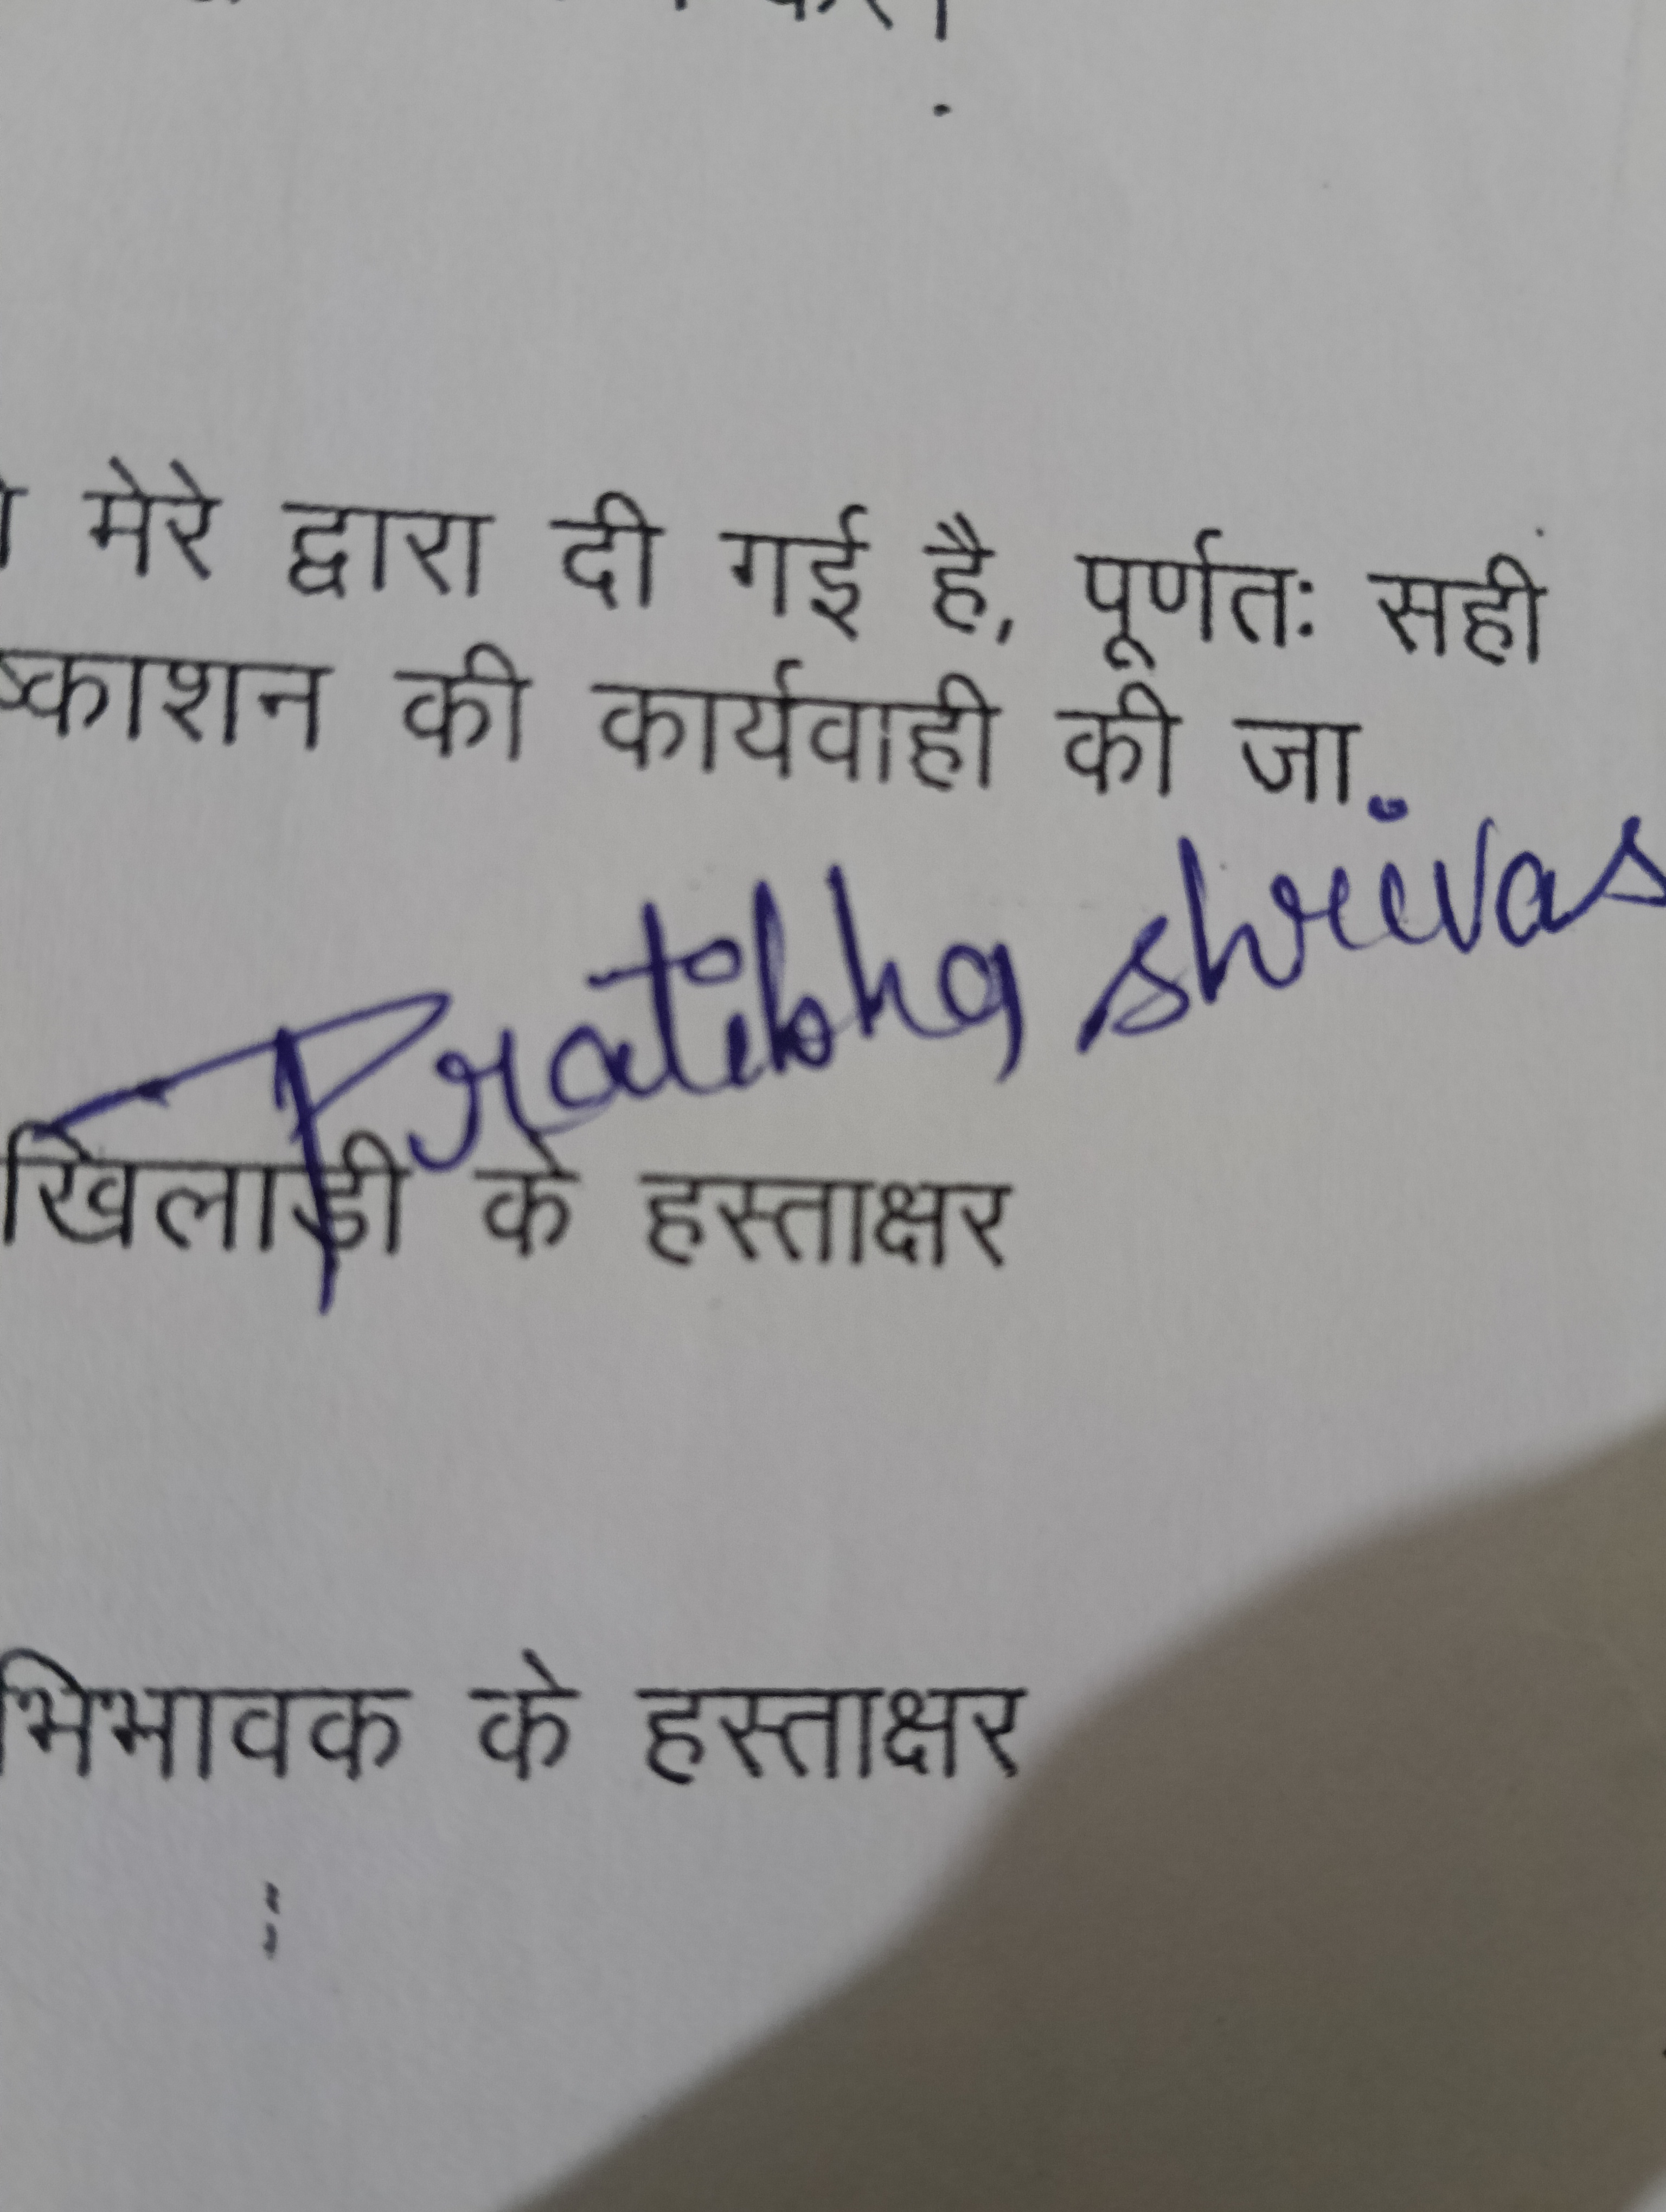 मेरे द्वारा दी गई है, पूर्णतः सही
ष्काशन की कार्यवाही की जा
Pratibha shrivas
खिलाड़ी के हस्ताक्षर
भिभावक के हस्ताक्षर